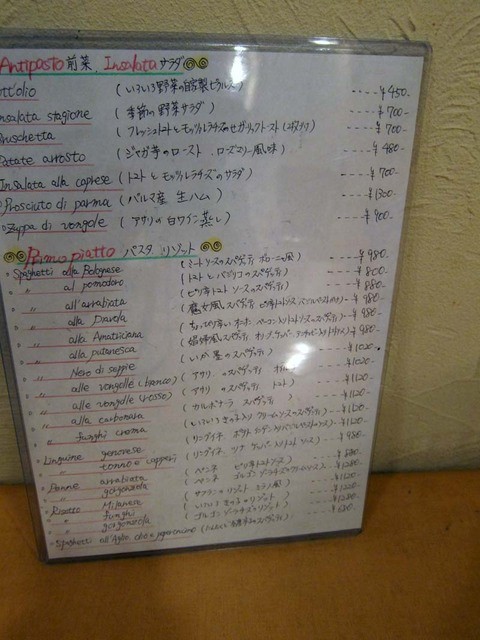 Antipasto 前菜、Insalata サラダ
ott'olio (いろいろ野菜の自家製ピクルス) ---- ¥450-
Insalata stagione (季節の野菜サラダ) ---- ¥700-
Bruschetta (フレッシュトマトとモッツァレラチーズのせガーリックトースト) ---- ¥700-
Patate arrosto (ジャガ芋のロースト ローズマリー風味) ---- ¥480-
Insalata alla caprese (トマトとモッツァレラチーズのサラダ) ---- ¥700-
Prosciuto di parma (パルマ産 生ハム) ---- ¥1300-
Zuppa di vongole (アサリの白ワイン蒸し) ---- ¥900-
Primo piatto パスタ リゾット
Spaghetti alla Bolognese (ミートソースのスパゲッティ ボローニャ風) ---- ¥980-
〃 al pomodoro (トマトとバジリコのスパゲッティ) ---- ¥800-
〃 all'arrabiata (ピリ辛トマトソースのスパゲッティ) ---- ¥880-
〃 alla Diavola (魔女風スパゲティ ¥980-
〃 alla Amatriciana ¥980-
〃 alla putanesca (娼婦風スパゲティ ¥980-
〃 Nero di seppie (いか墨のスパゲッティ) ---- ¥1020-
〃 alle vongole (bianco) (アサリのスパゲッティ ---- ¥1020-
〃 alle vongole (rosso) (アサリのスパゲッティ トマト) ---- ¥1120-
〃 alla carbonara (カルボナーラ スパゲティ) ---- ¥1120-
〃 funghi crema (いろいろきのこ入りクリームソースのスパゲッティ) ¥1120-
Linguine genovese (リングイネ ¥1120-
〃 tonno e capperi (リングイネ ツナ ケッパー入りトマトソース) ---- ¥980-
Penne arrabiata (ペンネ ピリ辛トマトソース)
〃 gorgonzola (ペンネ ゴルゴンゾーラチーズ
Risotto Milanese (サフランのリゾット ミラノ風)
〃 funghi (いろいろきのこのリゾット)
〃 gorgonzola (ゴルゴンゾーラチーズのリゾット)
Spaghetti all'Aglio, olio e peperoncino